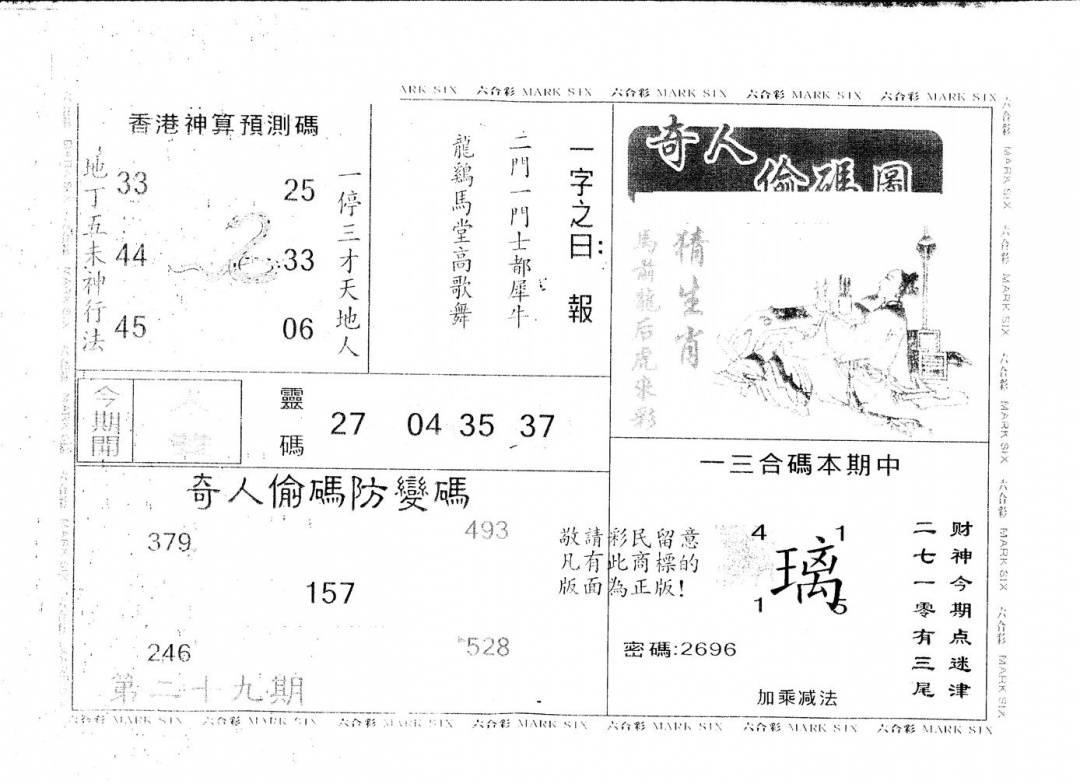 ARK SIX 六合彩 MARK SIX 六合彩 MARK SIX 六合彩 MARK SIX 六合彩 MARK SIX
香港神算預測碼
地丁五未神行法
33
44
45
25
33
06
一停三才天地人
一字之曰:報
二門一門士都犀牛
龍鷄馬堂高歌舞
奇人偷碼圖
猜生肖
馬前龍后虎來彩
今期開
靈碼
27 04 35 37
奇人偷碼防變碼
379
493
157
246
528
第二十九期
敬請彩民留意
凡有此商標的
版面為正版!
一三合碼本期中
4 1
璃
1 5
密碼:2696
加乘减法
财神今期点迷津
二七一零有三尾
六合彩 MARK SIX 六合彩 MARK SIX 六合彩 MARK SIX 六合彩 MARK SIX 六合彩 MARK SIX
六合彩 MARK SIX 六合彩 MARK SIX 六合彩 MARK SIX 六合彩 MARK SIX 六合彩 MARK SIX 六合彩 MARK SIX 六合彩 MARK SIX